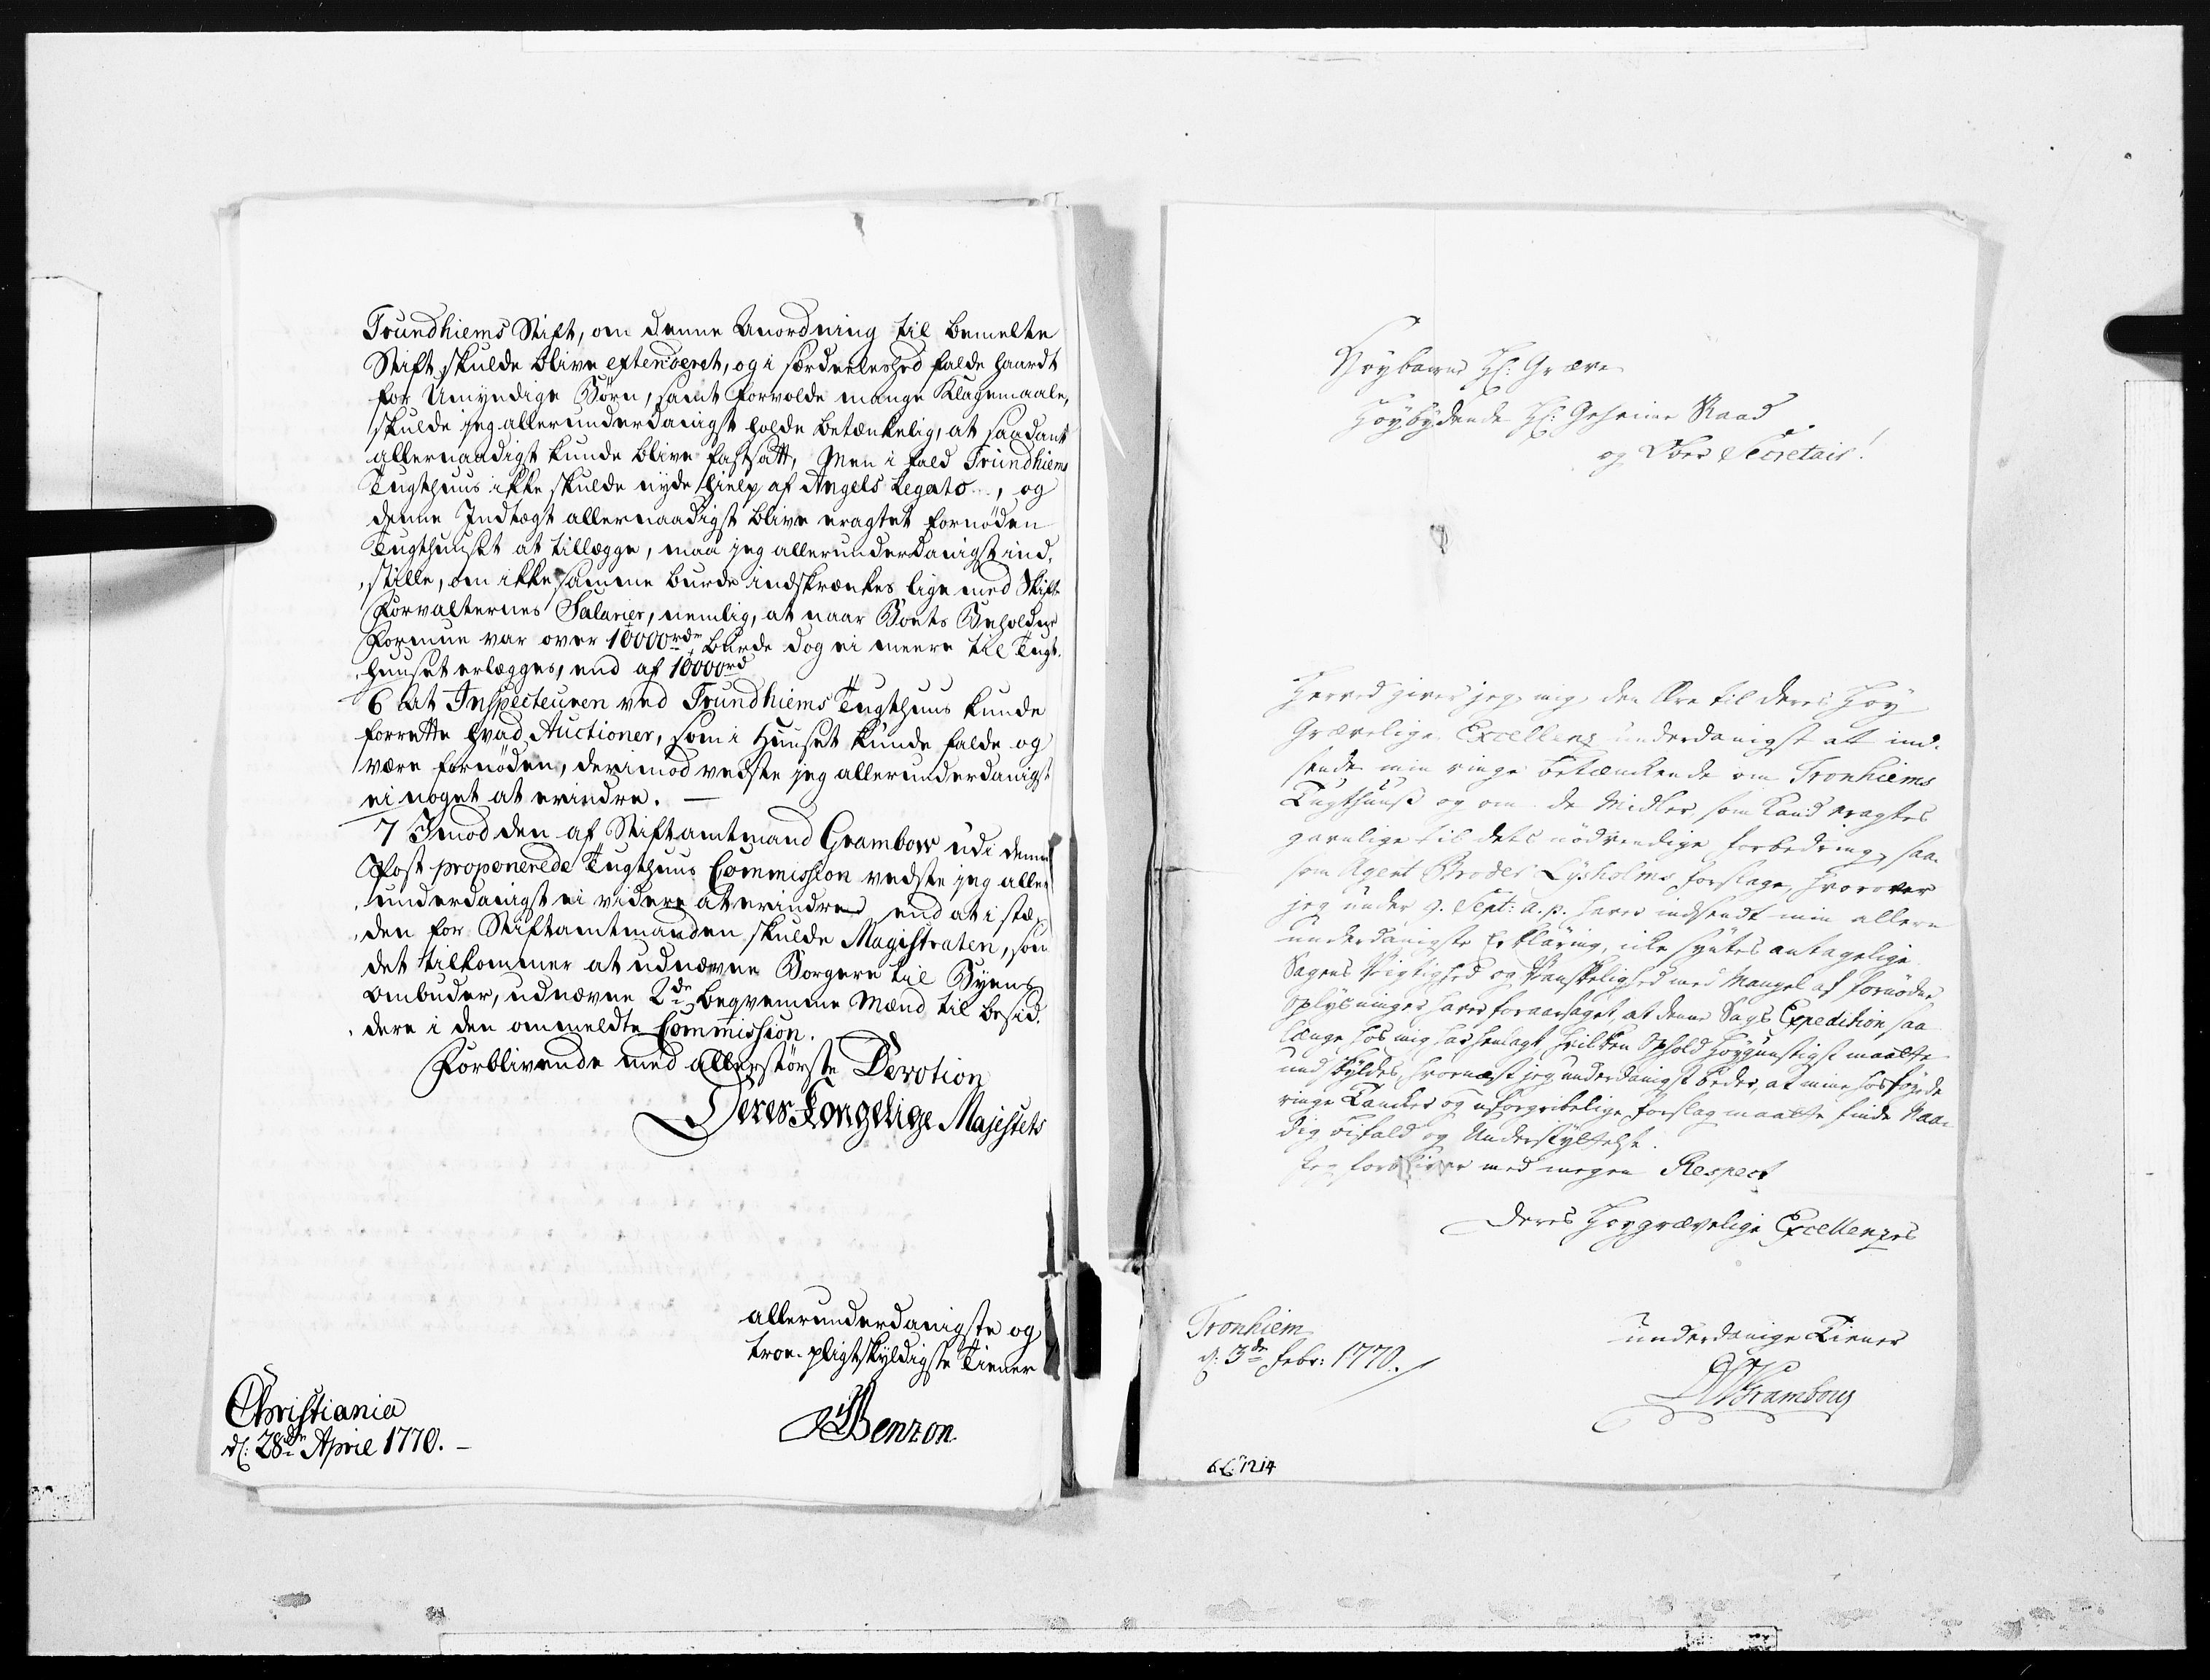 Trundhiems Stift, om denne Anordning til bemelte
Stift skulde blive extenderet, og i særdeeleshed falde haardt
for Umyndige Børn, samt forvolde mange Klagemaale,
skulde jeg allerunderdanigst holde betænkelig, at saadant
allernaadigst kunde blive fastsatt, Men i fald Trundhiems
Tugthuus ikke skulde nyde hielp af Angels Legato, og
denne Indtægt allernaadigst blive eragtet fornøden
Tugthuuset at tillægge, maa jeg allerunderdanigst ind-
stille, om ikke samme burde indskrænkes lige med Skifte
Forvalternes Salarier, nemlig, at naar Boets Beholdne
Formue var over 10000 rdr, burde dog ei meere til Tugt-
huuset erlægges, end af 10000 rd
6 At Inspecteuren ved Trundhiems Tugthuus kunde
forrette hvad Auctioner, som i Huuset kunde falde og
være fornøden, derimod vedste jeg allerunderdanigst
ei noget at erindre. —
7 Imod den af Stiftamtmand Grambow udi denne
Post proponerede Tugthuus Commission vedste jeg aller-
underdanigst ei videre at erindre end at i stæ-
den for Stiftamtmanden skulde Magistraten, som
det tilkommer at udnævne Borgere til Byens
Ombuder, udnævne 2de beqvemme Mænd til besid-
dere i den ommeldte Commission.
Forblivende med allerstørste Devotion
Deres Kongelige Majestets
allerunderdanigste og
troe-pligtskyldigste Tiener
Benzon
Christiania
d: 28de April 1770. —
Høybaarne Hr: Græve
Høybydende Hr: Geheime Raad
og Ober Secretair!
Herved giver jeg mig den Ære til deres Høy
Grævelige Excellenz underdanigst at ind-
sende min ringe betænkende om Tronhiems
Tugthuus og om de Midler som kand eragtes
gavnlige til dets nødvendige forbedring, saa-
som Agent Broder Lysholms forslage, hvorover
jeg under 9. Sept: a. p. haver indsendt min allern
underdanigste Erklæring, icke syntes antagelige.
Sagens Vigtighed og Vanskelighed med Mangel af fornødne
Oplysninger haver foraarsaget, at denne Sags Expedition saa
længe hos mig har henlagt hvilken Ophold høygunstigst maatte
undskyldes, hvornæst jeg underdanigst beder, at mine hosføyede
ringe Tancker og uforgribelige forslag maatte finde Naa-
dig bifald og Understyttelse.
Jeg forbliver med megen Respect
Deres Høygrævelige Excellenzes
underdanige Tiener
Grambow
Tronhiem
d: 3de Febr: 1770.
1214